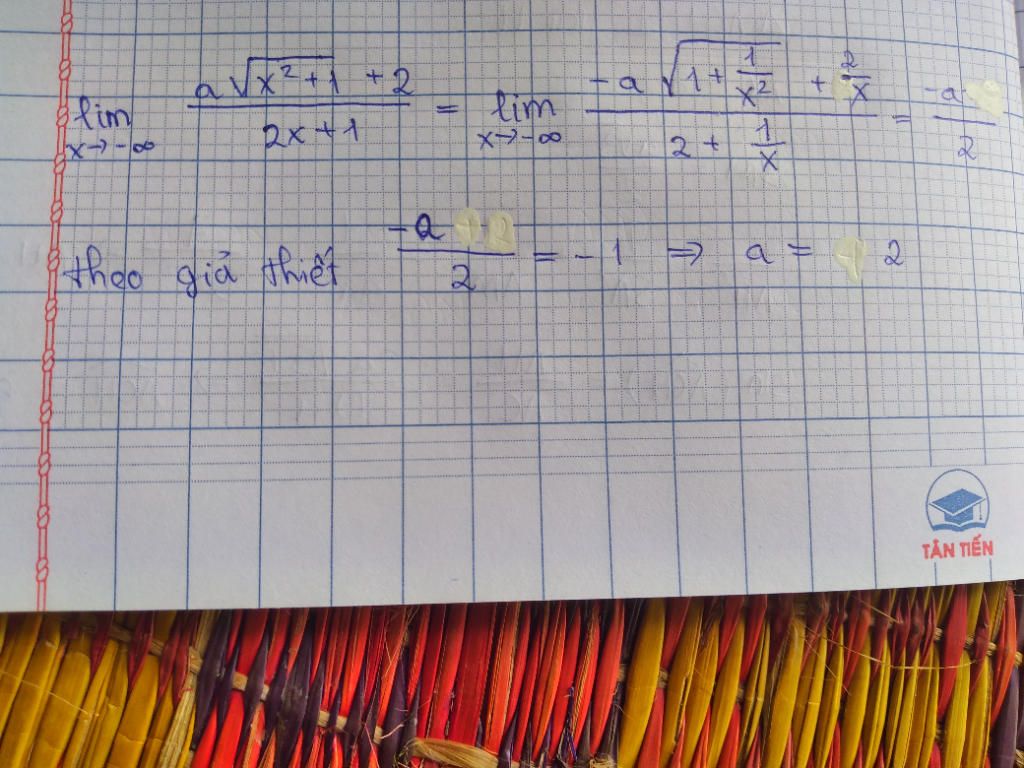 lim x→-∞ (a√(x² + 1) + 2)/(2x + 1) = lim x→-∞ (-a√(1 + 1/x²) + 2/x)/(2 + 1/x) = -a/2
theo giả thiết -a/2 = -1 ⇒ a = 2
TÂN TIẾN